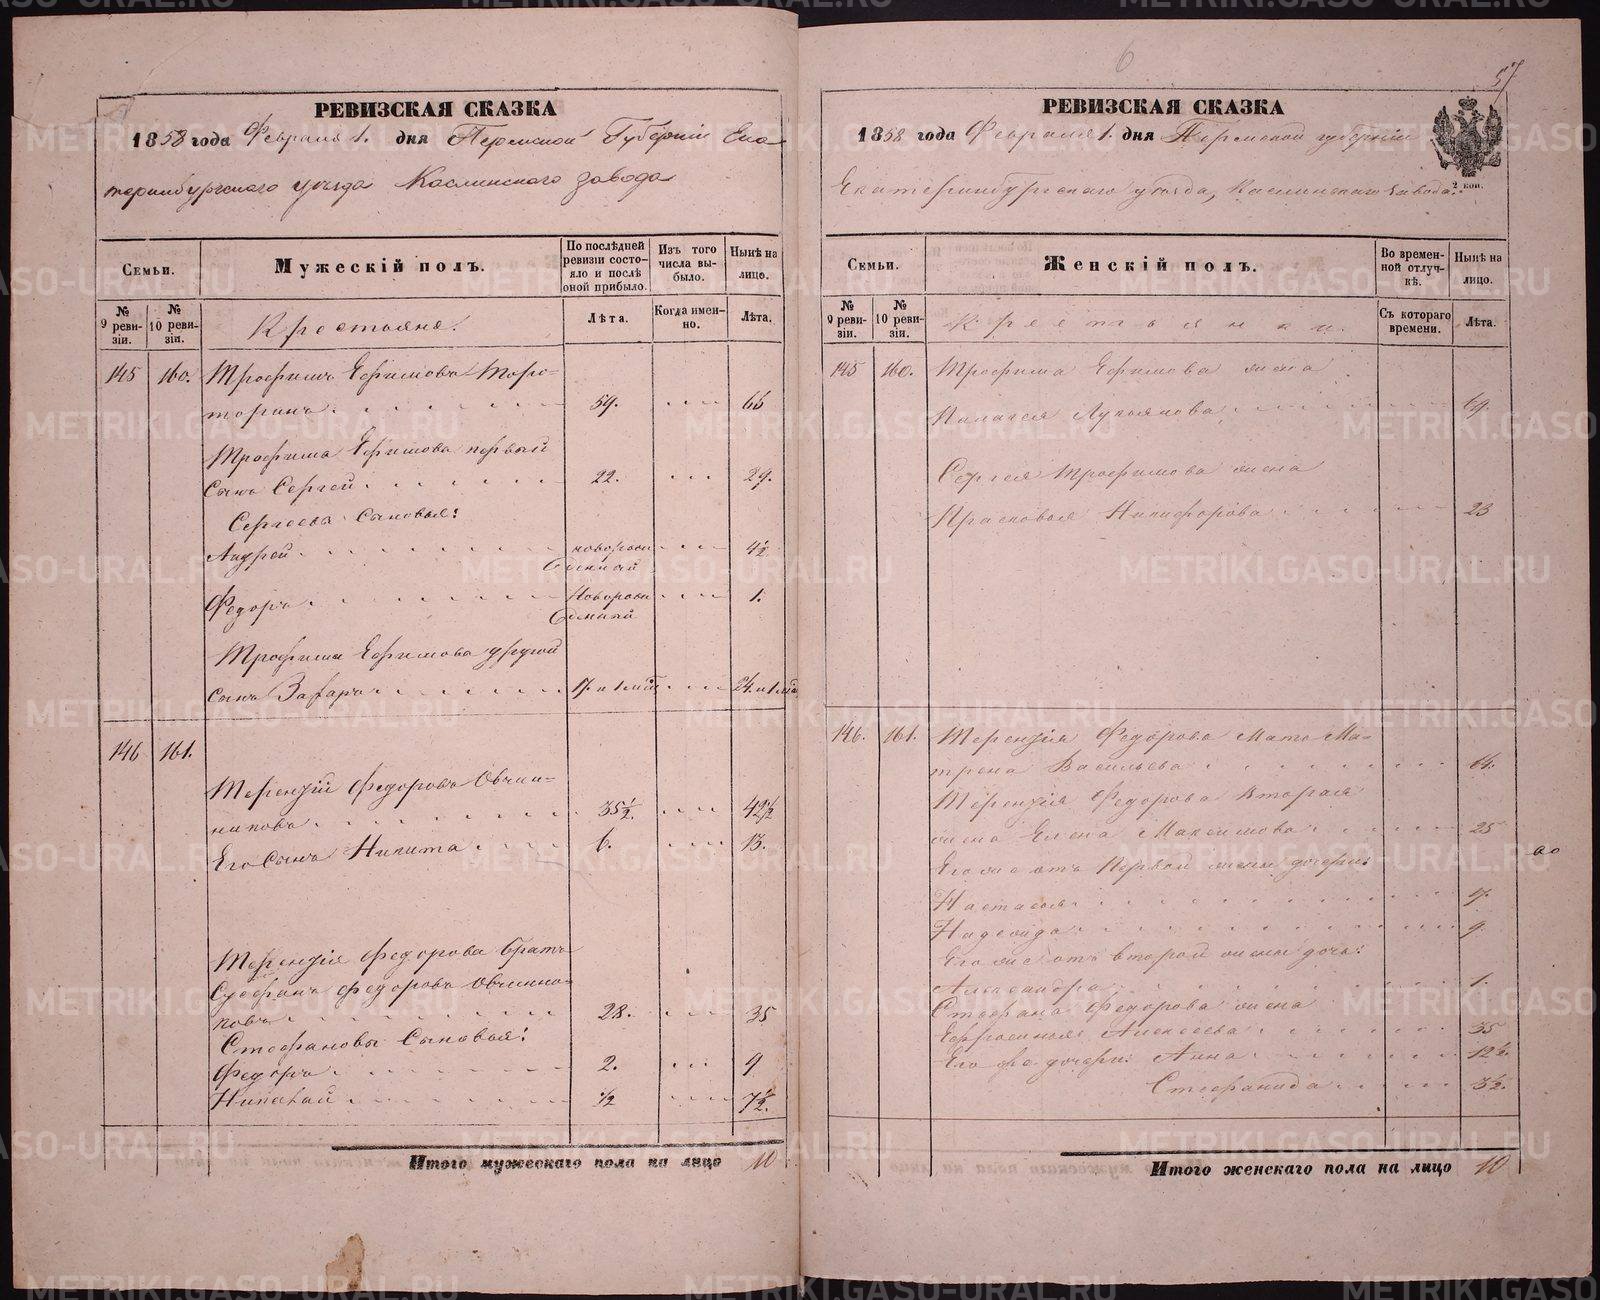 РЕВИЗСКАЯ СКАЗКА
1858 года Февраля 1. дня Пермской Губерніи Ека
теринбургскаго уѣзда Каслинскаго завода
Семьи.
Мужескій полъ.
По послѣдней ревизіи состояло и послѣ оной прибыло.
Изъ того числа выбыло.
Нынѣ на лицо.
№ 9 ревизіи.
№ 10 ревизіи.
Крестьяне.
Лѣта.
Когда именно.
Лѣта.
145 160. Трофимъ Ефимовъ
59. 66
Трофима Ефимова первый
сынъ Сергей 22. 29.
Сергеевы Сыновья:
Андрей новорож 4½
денный
Федоръ Новорож 1.
денный
Трофима Ефимова другой
сынъ Захаръ 17. и 1 мѣс 24. и 1 мѣс
146 161.
Терентій Федоровъ Овчин=
никовъ 35½. 42½
Его Сынъ Никита 6. 13.
Терентія Федорова братъ
Стефанъ Федоровъ Овчинни=
ковъ 28. 35
Стефановы Сыновья:
Федоръ 2. 9
Николай ½ 7½.
Итого мужескаго пола на лицо 10
6
57
РЕВИЗСКАЯ СКАЗКА
1858 года Февраля 1. дня Пермской губерніи
Екатеринбургскаго уѣзда, Каслинскаго завода.
2 коп.
Семьи.
Женскій полъ.
Во временной отлучкѣ.
Нынѣ на лицо.
№ 9 ревизіи.
№ 10 ревизіи.
Крестьянки.
Съ котораго времени.
Лѣта.
145 160. Трофима Ефимова жена
Палагея Лукоянова 69.
Сергея Трофимова жена
Прасковья Никифорова 23
146. 161. Терентія Федорова Мать Ма=
трена Васильева 64.
Терентія Федорова Вторая
жена Елена Максимова 25
Его же отъ Первой жены дочери:
Настасья
Надежда 9.
Его же отъ второй жены дочь:
Александра 1.
Стефана Федорова жена
Ефросинья Алексеева 35
Его же дочери: Анна 12½.
Стефанида 3½.
Итого женскаго пола на лицо 10
METRIKI.GASO-URAL.RU